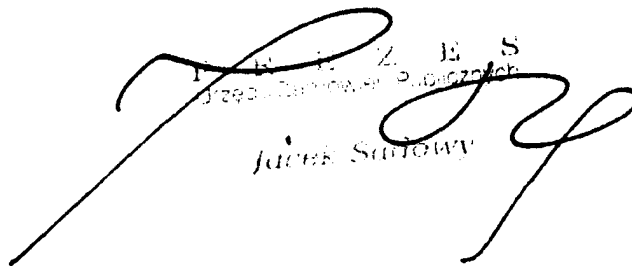 PREZES
Urzędu Zamówień Publicznych
Jacek Sadowy